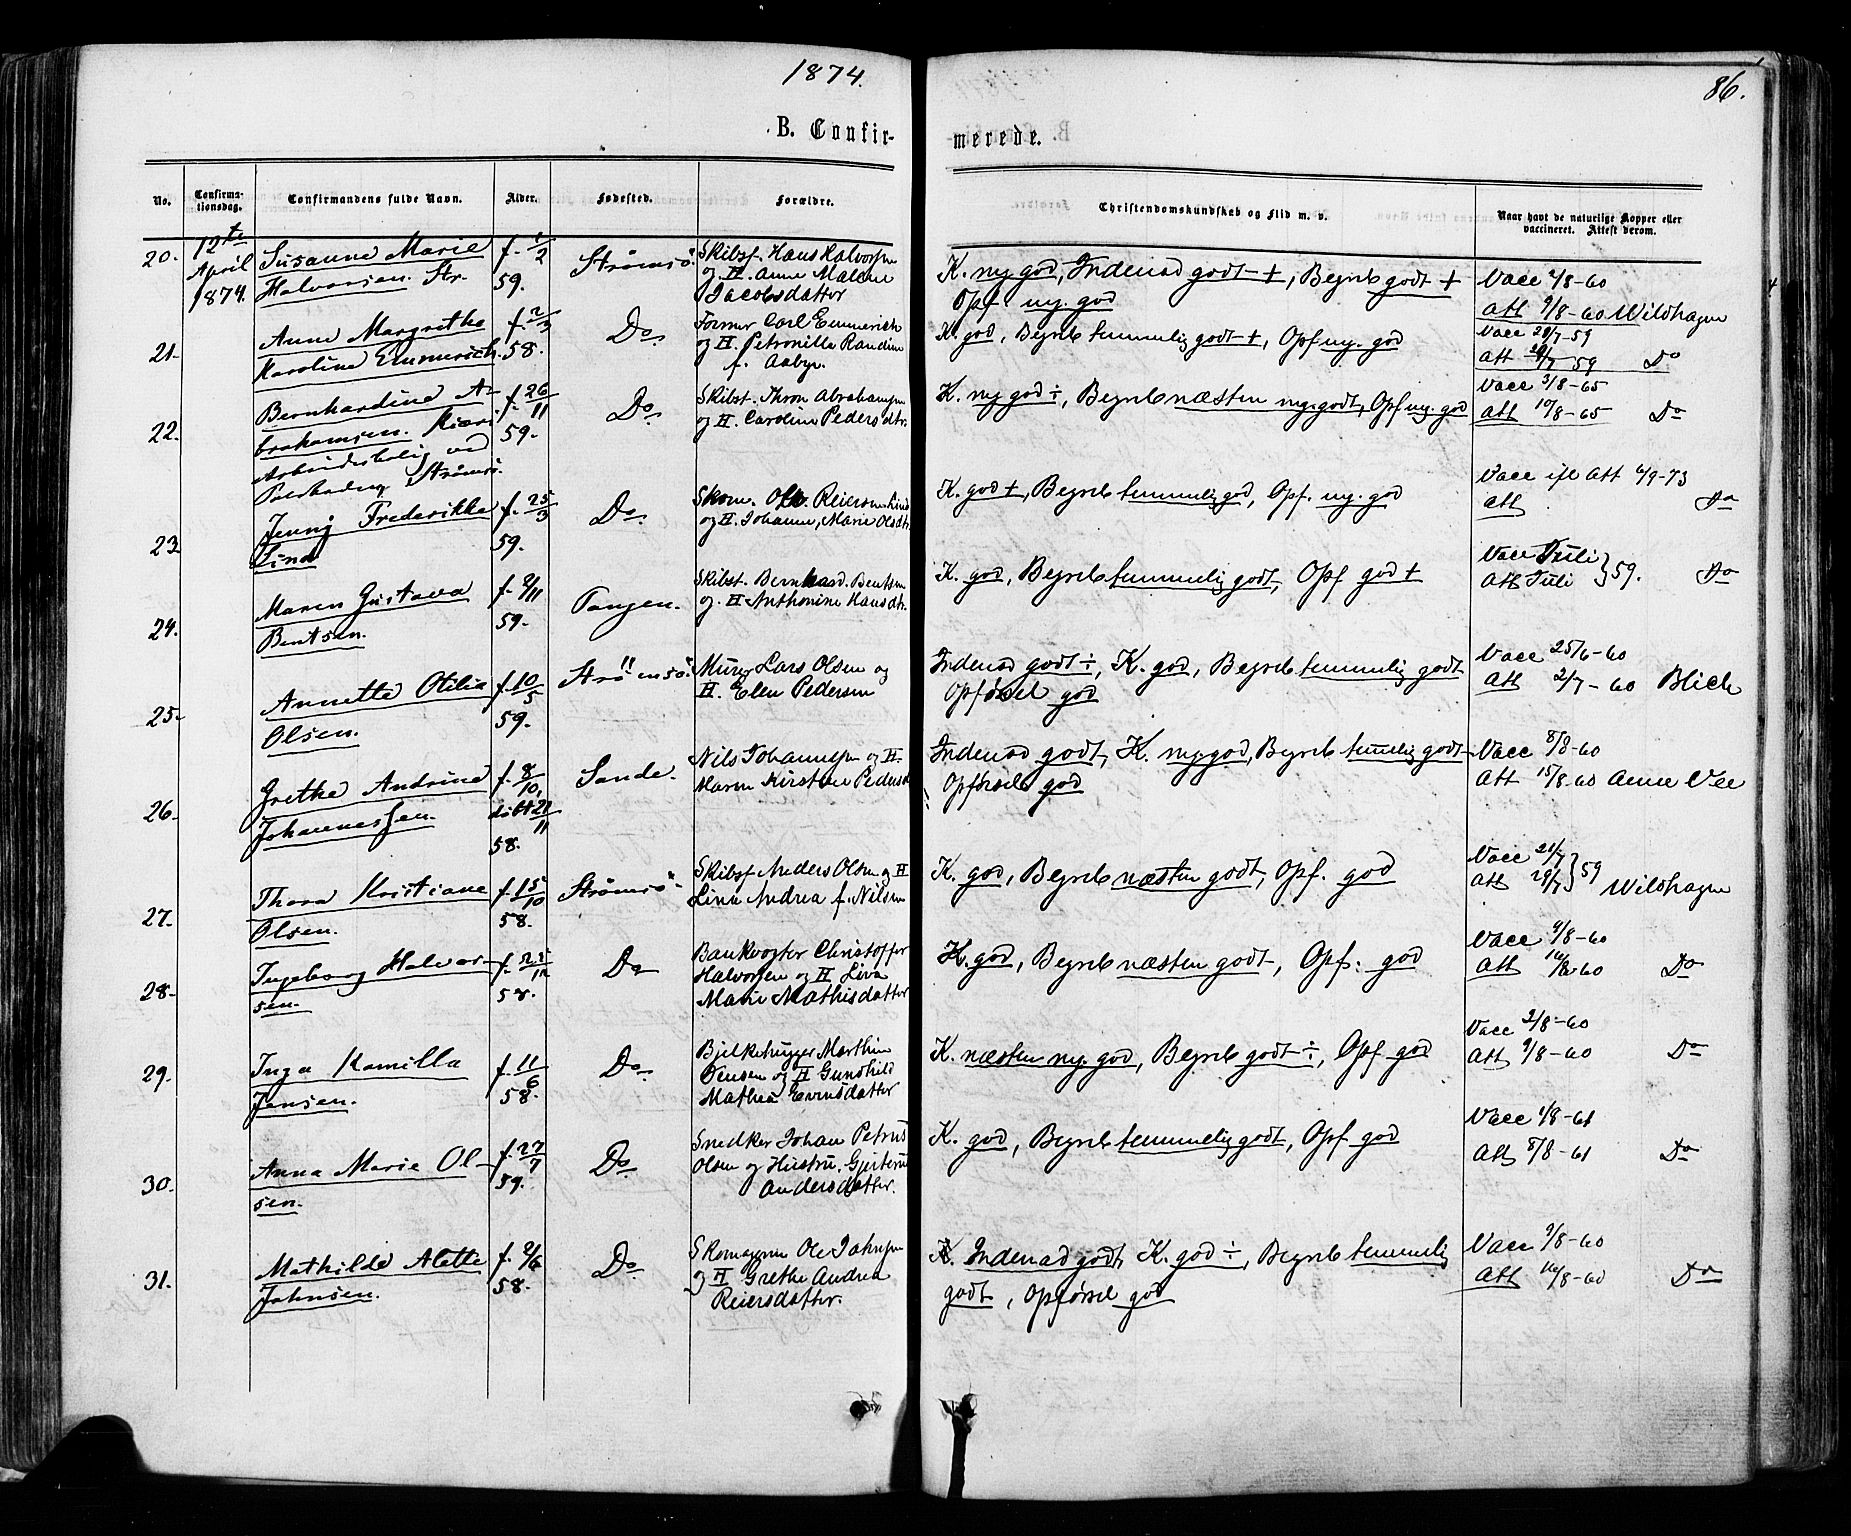 1874.
86.
B. Confir-
merede.
No.
Confirma-
tionsdag.
Confirmandens fulde Navn.
Alder.
Fødested.
Forældre.
Christendomskundskab og Flid m. v.
Naar havt de naturlige Kopper eller
vaccineret. Attest derom.
20.
12te
April
1874.
Susanne Marie
Halvorsen. Str.
f. 1/2
59.
Strømsö
Skibsf. Hans Halvorsen
og H. Anne Malene
Jacobsdatter
K. ng god, Indenad godt +, Begreb godt +
Opf. ng. god
Vacc 2/8-60
Att 9/8-60 Wildhagen
21.
Anne Margrethe
Karoline Emmerich.
f. 2/3
58.
Do
Former Carl Emmerich
og H. Petronille Randine
f. Aabye.
K. god, Begreb temmelig godt +, Opf ng. god
Vacc 21/7-59
Att 28/7-59 Do
22.
Bernhardine A-
brahamsen.
Arbeiderbolig ved
Strømsö.
f. 26/11
59.
Do
Skibst. Thron Abrahamsen
og H. Caroline Pedersdtr.
K. ng god ÷, Begreb næsten ng. godt, Opf ng. god
Vacc 3/8-65
Att 10/8-65 Do
23
Jenny Frederikke
Lind
f. 25/3
59.
Do.
Skom. Ole Reiersen Lind
og H. Johanne Marie Olsdtr.
K. god +, Begreb temmelig god, Opf. ng. god
Vacc ifl Att 6/9-73
Att Do
24.
Maren Gustava
Bentsen.
f. 2/11
59.
Tangen.
Skibst. Bernhard Bentsen
og H Anthonine Hansdtr.
K. god, Begreb temmelig godt, Opf god +
Vacc Juli
Att Juli } 59. Do
25.
Annette Otilia
Olsen.
f. 10/5
59.
Strömsö.
Murer Lars Olsen og
H. Elen Pedersen
Indenad godt ÷, K. god, Begreb temmelig godt
Opførsel god
Vacc 25/6-60
Att 2/7-60 Blich
26.
Grethe Andrine
Johannessen.
f. 8/10,
døbt 21/11
58.
Sande.
Nils Johannesen og H.
Maren Kirstine Pedersd
Indenad godt, K. ng god, Begreb temmelig godt
Opførsel god
Vacc 8/8-60
Att 15/8-60
27.
Thora Kristiane
Olsen.
f. 15/10
58.
Strømsö
Skibsf Anders Olsen og H
Lina Andrea f. Nilsen
K. god, Begreb næsten godt, Opf. god
Vacc 21/7
Att 29/7 } 59 Wildhagen
28.
Ingeborg Halvor-
sen.
f. 25/12
58.
Do
Bankvogter Christoffer
Halvorsen og H Lina
Marie Mathisdatter
K. god, Begreb næsten godt, Opf: god
Vacc 9/8-60
Att 16/8-60 Do
29.
Inga Kamilla
Jensen.
f. 11/6
58.
Do.
Bjelkehugger Marthin
Jensen og H Gunhild
Mathea Evensdatter
K. næsten ng. god, Begreb godt ÷, Opf god
Vacc 2/8-60
Att 9/8-60 Do
30.
Anna Marie Ol-
sen.
f. 27/7
59.
Do
Snedker Johan Petrus
Olsen og Hustru,
Andersdatter.
K. god, Begreb temmelig godt, Opf god
Vacc 1/8-61
Att 8/8-61 Do
31.
Mathilde Alette
Johnsen.
f. 2/6
58.
Do
Skomagerm Ole Johnsen
og H Grethe Andrea
Reiersdatter.
Indenad godt, K. god ÷, Begreb temmelig
godt, Opførsel god
Vacc 9/8-60
Att 16/8-60 Do